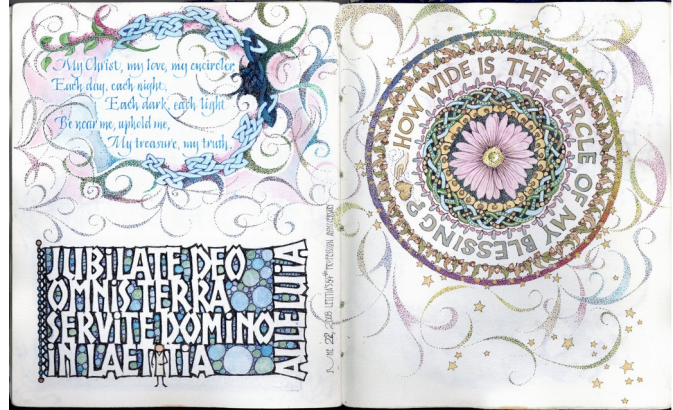 My Christ, my love, my encircler,
Each day, each night,
Each dark, each light
Be near me, uphold me,
My treasure, my truth.
JUBILATE DEO
OMNIS TERRA
SERVITE DOMINO
IN LAETITIA
ALLELUIA
22, 2008 PROFESSION ANNIVERSARY
HOW WIDE IS THE CIRCLE OF MY BLESSING?